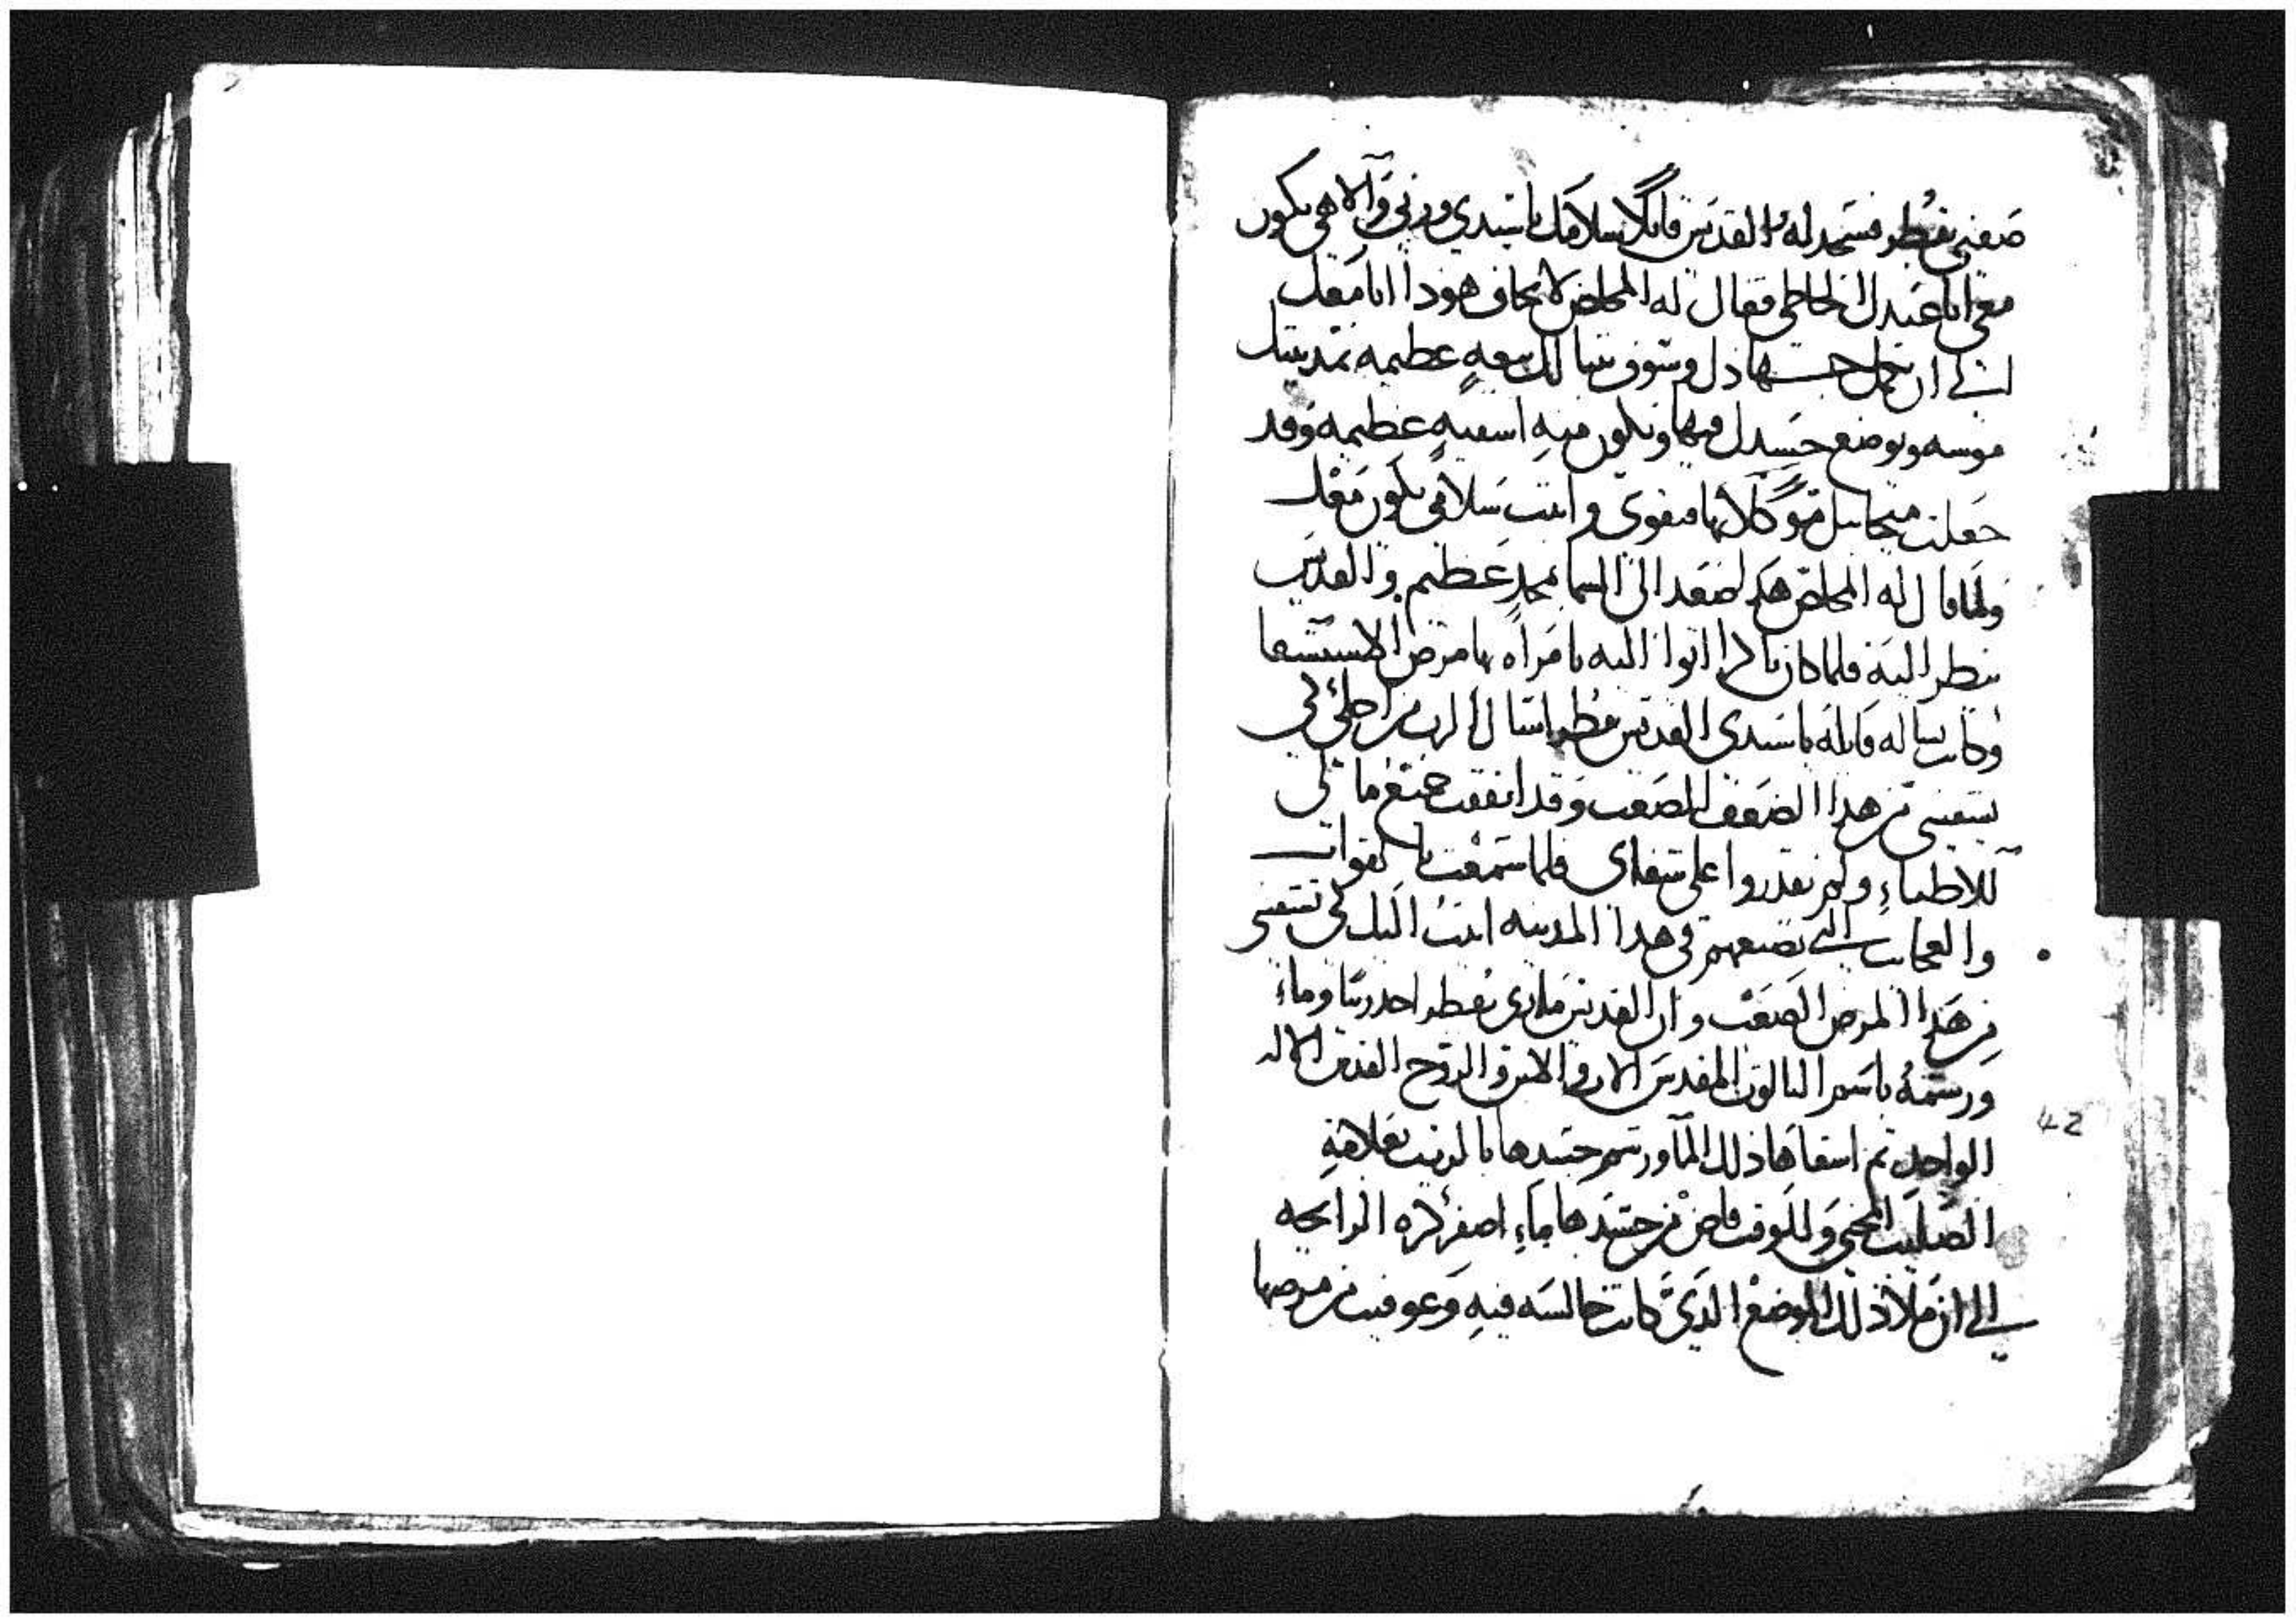 صفيي بقطر فسجد له القديس قايلا سلامك يا سيدي وربي والاهي يكون
معي انا عبدك الخاطي فقال له المخلص لا تخاف هوذا انا معك
الي ان تكمل جهادك وسوف تبنا لك بيعه عظيمه بمدينة
موسه ويوضع جسدك فيها ويكون فيه اشفيه عظيمه وقد
جعلت ميخاييل موكلا بها فتقوي وانت سلامي يكون معك
ولما قال له المخلص هكذا صعد الى السما بمجد عظيم والقديس
ينظر اليه فلما كان باكرا اتوا اليه بامراه بها مرض الاستسقا
وكانت تساله قايله يا سيدي القديس بقطر اسال الرب من اجلي لكي
يشفيني من هدا الضعف الصعب وقد انفقت جميع ما لي
للاطباء ولم يقدروا على شفاي فلما سمعت بالقوات
والعجايب التي تصنعهم في هدا المدينه اتيت اليك لكي تشفيني
من هدا المرض الصعب وان القديس ماري بقطر اخد زيتا وماء
ورشمه باسم التالوت المقدس الاب والابن والروح القدس الاله
الواحد تم اسقاها ذلك الما ورشم جسدها بالزيت بعلامة
الصليب المحيي وللوقت فاض من جسدها ماء اصفر كره الرايحه
الي ان ملا ذلك الموضع الدي كانت جالسه فيه وعوفيت من مرضها
42